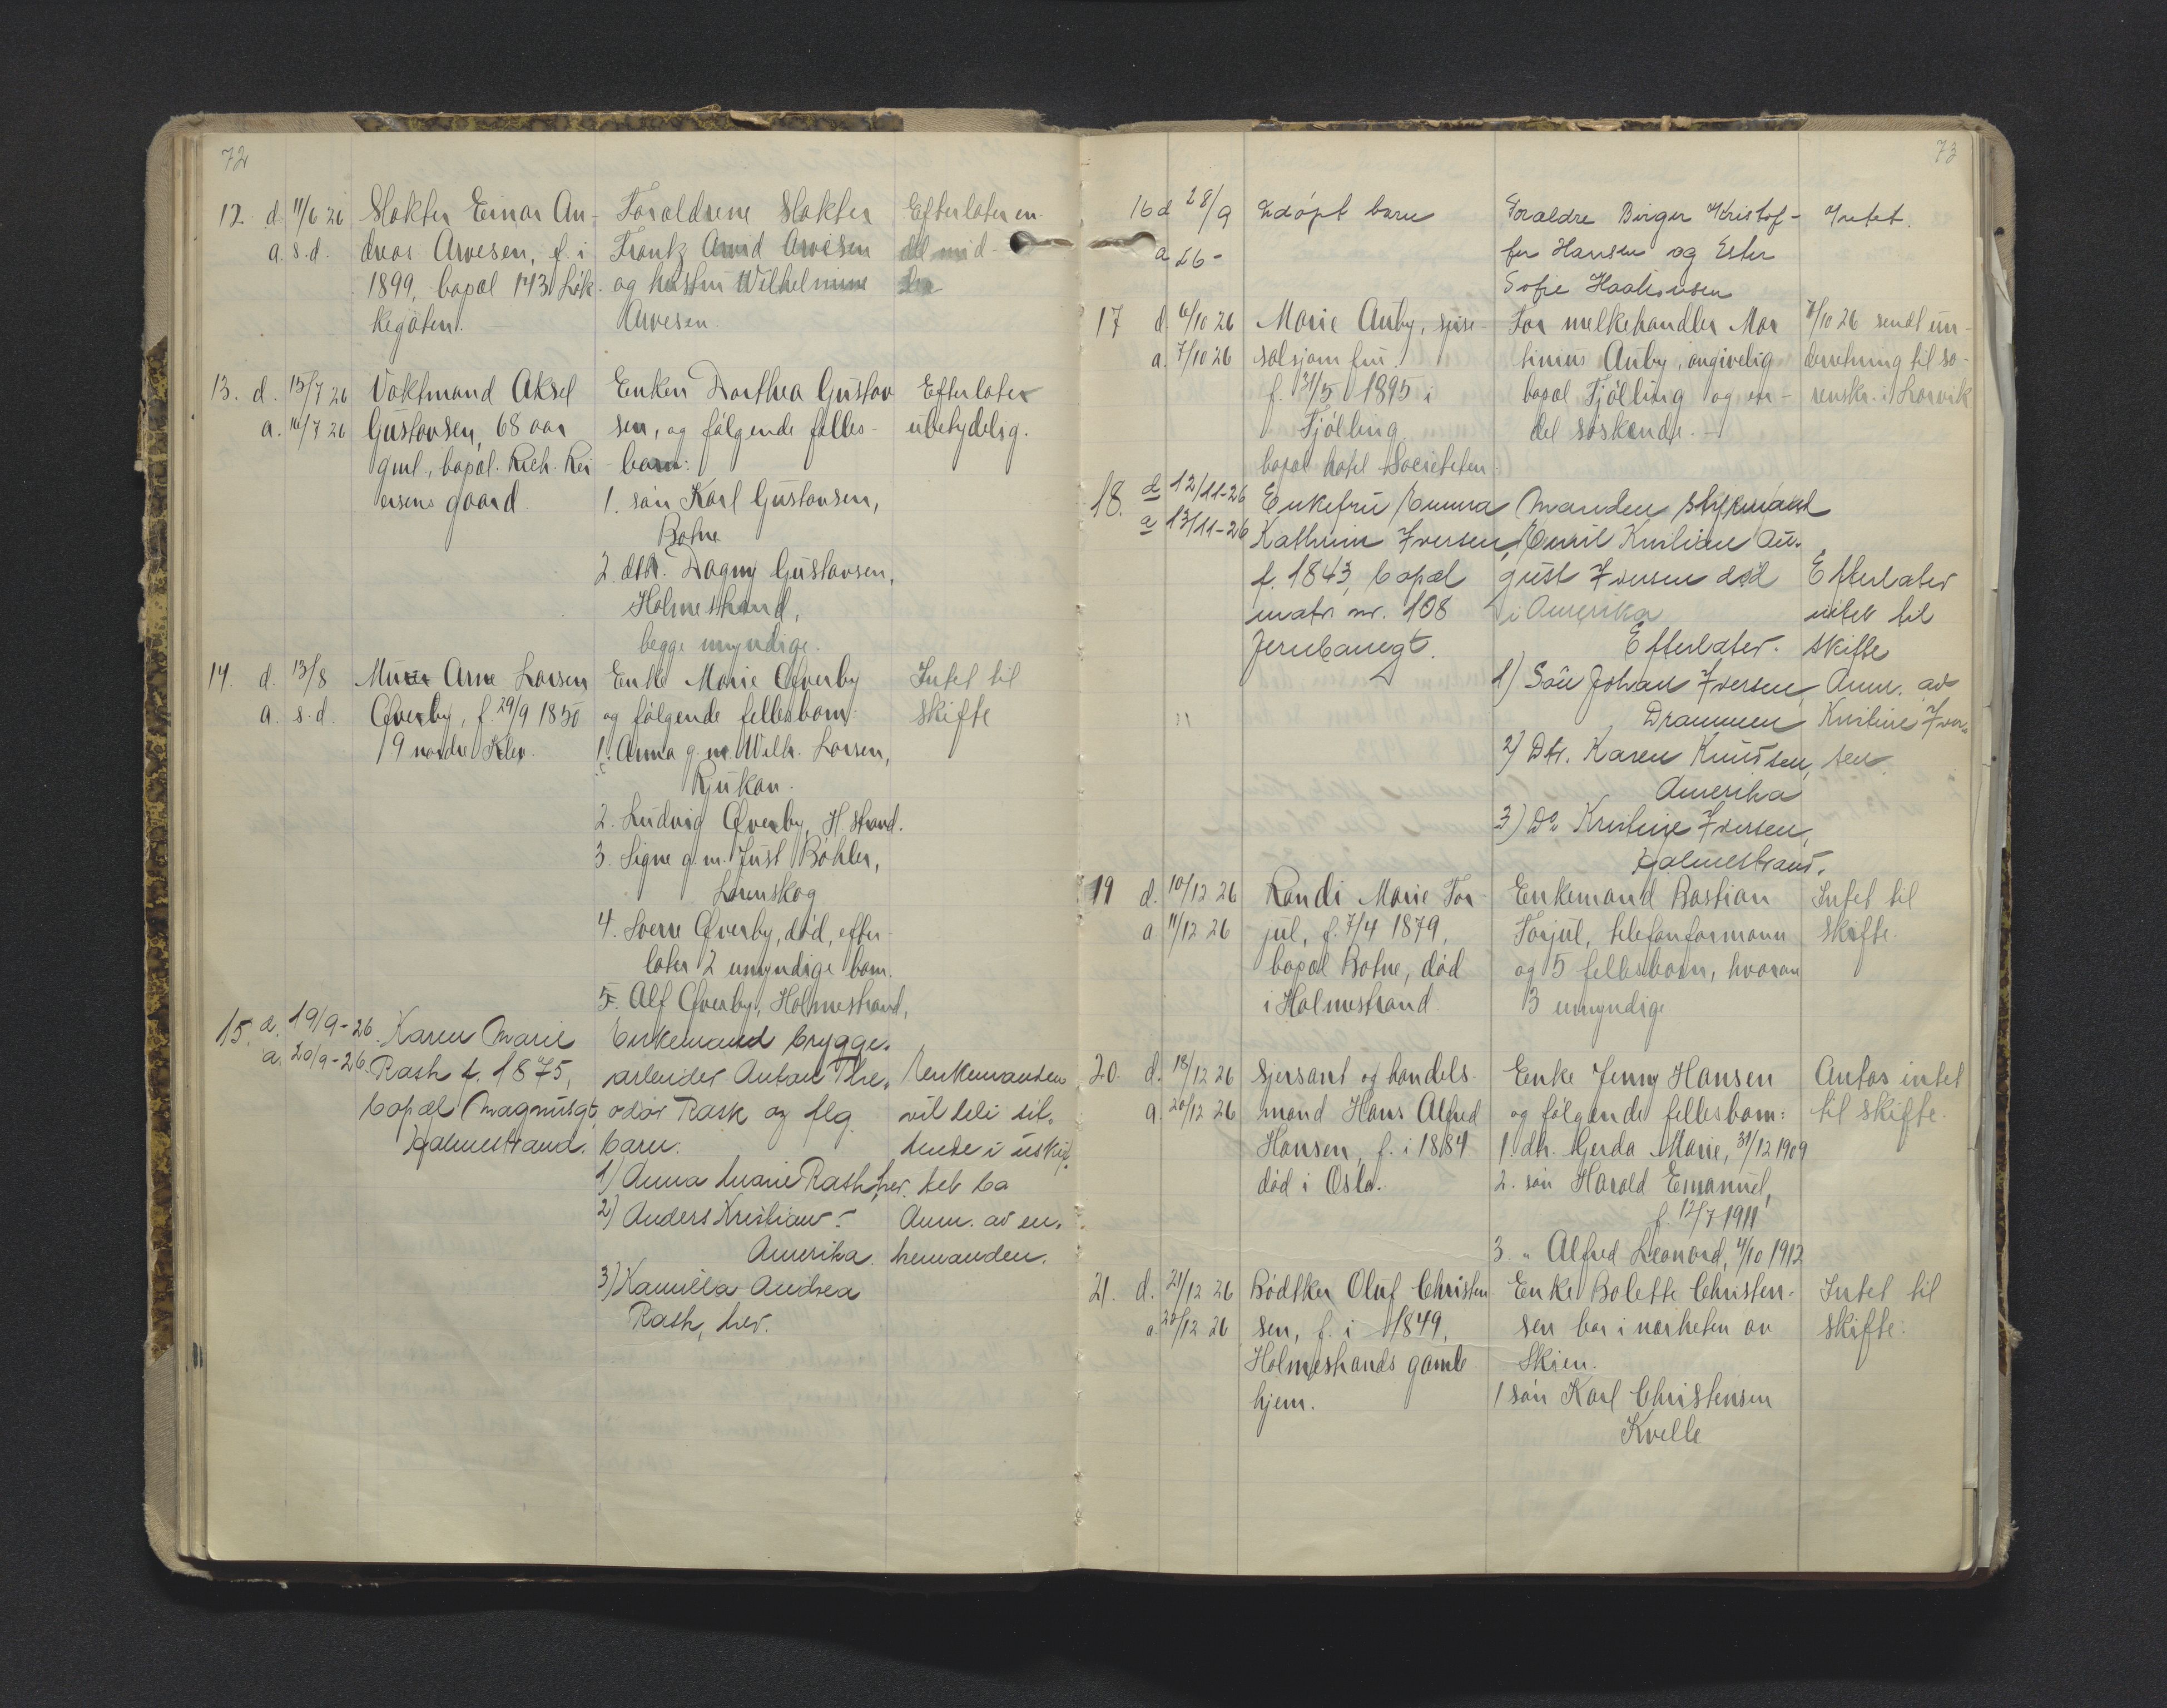 72
12. d. 11/6 26 Slakter Einar An-
a. s.d. dreas Arvesen, f. i
1899, bopæl 143 Løk-
kegaten.
Forældrene slakter
Frantz Arvid Arvesen
og hustru Wilhelmine
Arvesen.
Efterlater en
del mid-
ler
13. d. 15/7 26 Vaktmand Aksel
a. 16/7 26 Gustavsen, 68 aar
gml., bopæl. Rich. Rei
ersens gaard
Enken Dorthea Gustav
sen, og følgende fælles-
barn:
1. søn Karl Gustavsen,
Botne
2. dtr. Dagny Gustavsen,
Holmestrand,
begge myndige.
Efterlater
ubetydelig.
14. d. 13/8 Murer Arne Larsen
a. s.d. Qverby, f. 29/9 1850
19 nordre Klev.
Enke Marie Qverby
og følgende fellesbarn:
1. Anna g.m. Wilh. Larsen,
Rjukan.
2. Ludvig Qverby, H.strand.
3. Signe g.m. Just Bøhler,
Lørenskog
4. Sverre Qverby, død, efter-
later 2 umyndige barn.
5. Alf Qverby, Holmestrand,
Intet til
skifte
15. d. 19/9-26. Karen Marie
a. 20/9-26. Rask f. 1875,
bopæl Magnusgt.
Holmestrand.
Enkemand brygge-
arbeider Anton The-
odor Rask og flg.
barn:
1) Anna Marie Rask, her.
2) Anders Kristian -
Amerika.
3) Kamilla Andrea
Rask, her.
Enkemanden
vil bli sit-
tende i uskif-
tet bo
Anm. av en-
kemanden.
73
16 d 28/9 Udøpt barn
a 26 -
Forældre Birger Kristof-
fer Hansen og Ester
Sofie Haakonsen
Intet.
17 d. 6/10 26 Marie Auby, spise-
a. 7/10 26 salsjomfru.
f. 31/5 1895 i
Tjølling
bopæl hotel Societeten.
Far melkehandler Mar
tinius Auby, angivelig
bopæl Tjølling og en-
del søskende. -
7/10 26 sendt un-
derretning til so-
renskr. i Larvik
18. d 12/11-26 Enkefru Emma
a 13/11-26 Kathrine Iversen,
f. 1843, bopæl
matr. nr. 108
Jernbanegt.
Manden styrmand
Emil Kristian Au-
gust Iversen død
i Amerika
Efterlater.
1) Søn Johan Iversen,
Drammen
2) Dtr. Karen Knudsen,
Amerika
3) Do Kristine Iversen,
Holmestrand.
Efterlater
intet til
skifte
Anm. av
Kristine Iver-
sen.
19 d. 10/12 26 Randi Marie Tor-
a 11/12 26 jul, f. 7/4 1879,
bopæl Botne, død
i Holmestrand
Enkemand Bastian
Torjul, telefonformann
og 5 fellesbarn, hvorav
3 umyndige
Intet til
skifte.
20. d. 18/12 26 Sersjant og handels-
a. 20/12 26 mand Hans Alfred
Hansen, f. i 1884
død i Oslo.
Enke Jenny Hansen
og følgende fellesbarn:
1. dtr. Gerda Marie, 31/12 1909
2. søn Harald Emanuel,
f. 12/7 1911
3. " Alfred Leonard, 4/10 1912
Antas intet
til skifte.
21. d. 21/12 26 Bødtker Oluf Christen-
a. 22/12 26 sen, f. i 1849,
Holmestrands gamle
hjem.
Enke Bolette Christen-
sen bor i nærheten av
Skien.
1 søn Karl Christensen
Kvelle
Intet til
skifte.